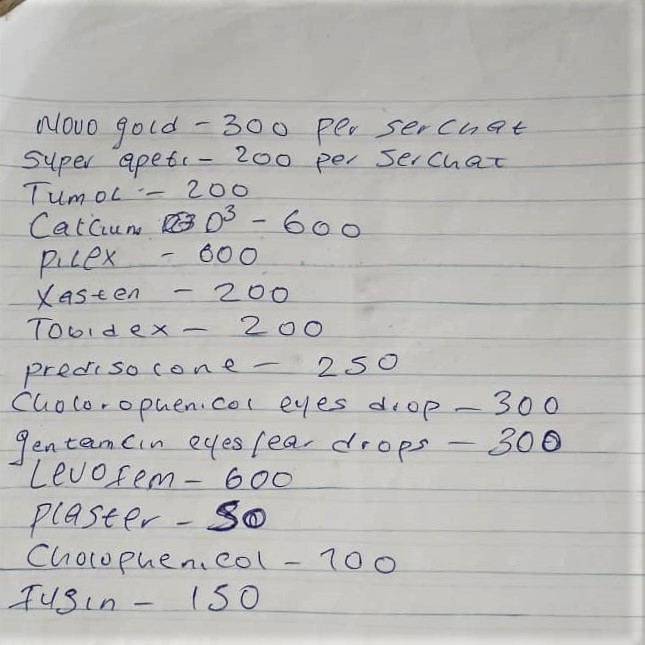 Novo gold - 300 per serchat
Super apeti - 200 per serchat
Tumol - 200
Calcium D3 - 600
Pilex - 600
Xasten - 200
Tobidex - 200
predisocone - 250
Cholorophenicol eyes drop - 300
gentamcin eyes/ear drops - 300
Levofem - 600
Plaster - 50
Cholophenicol - 100
Fugin - 150